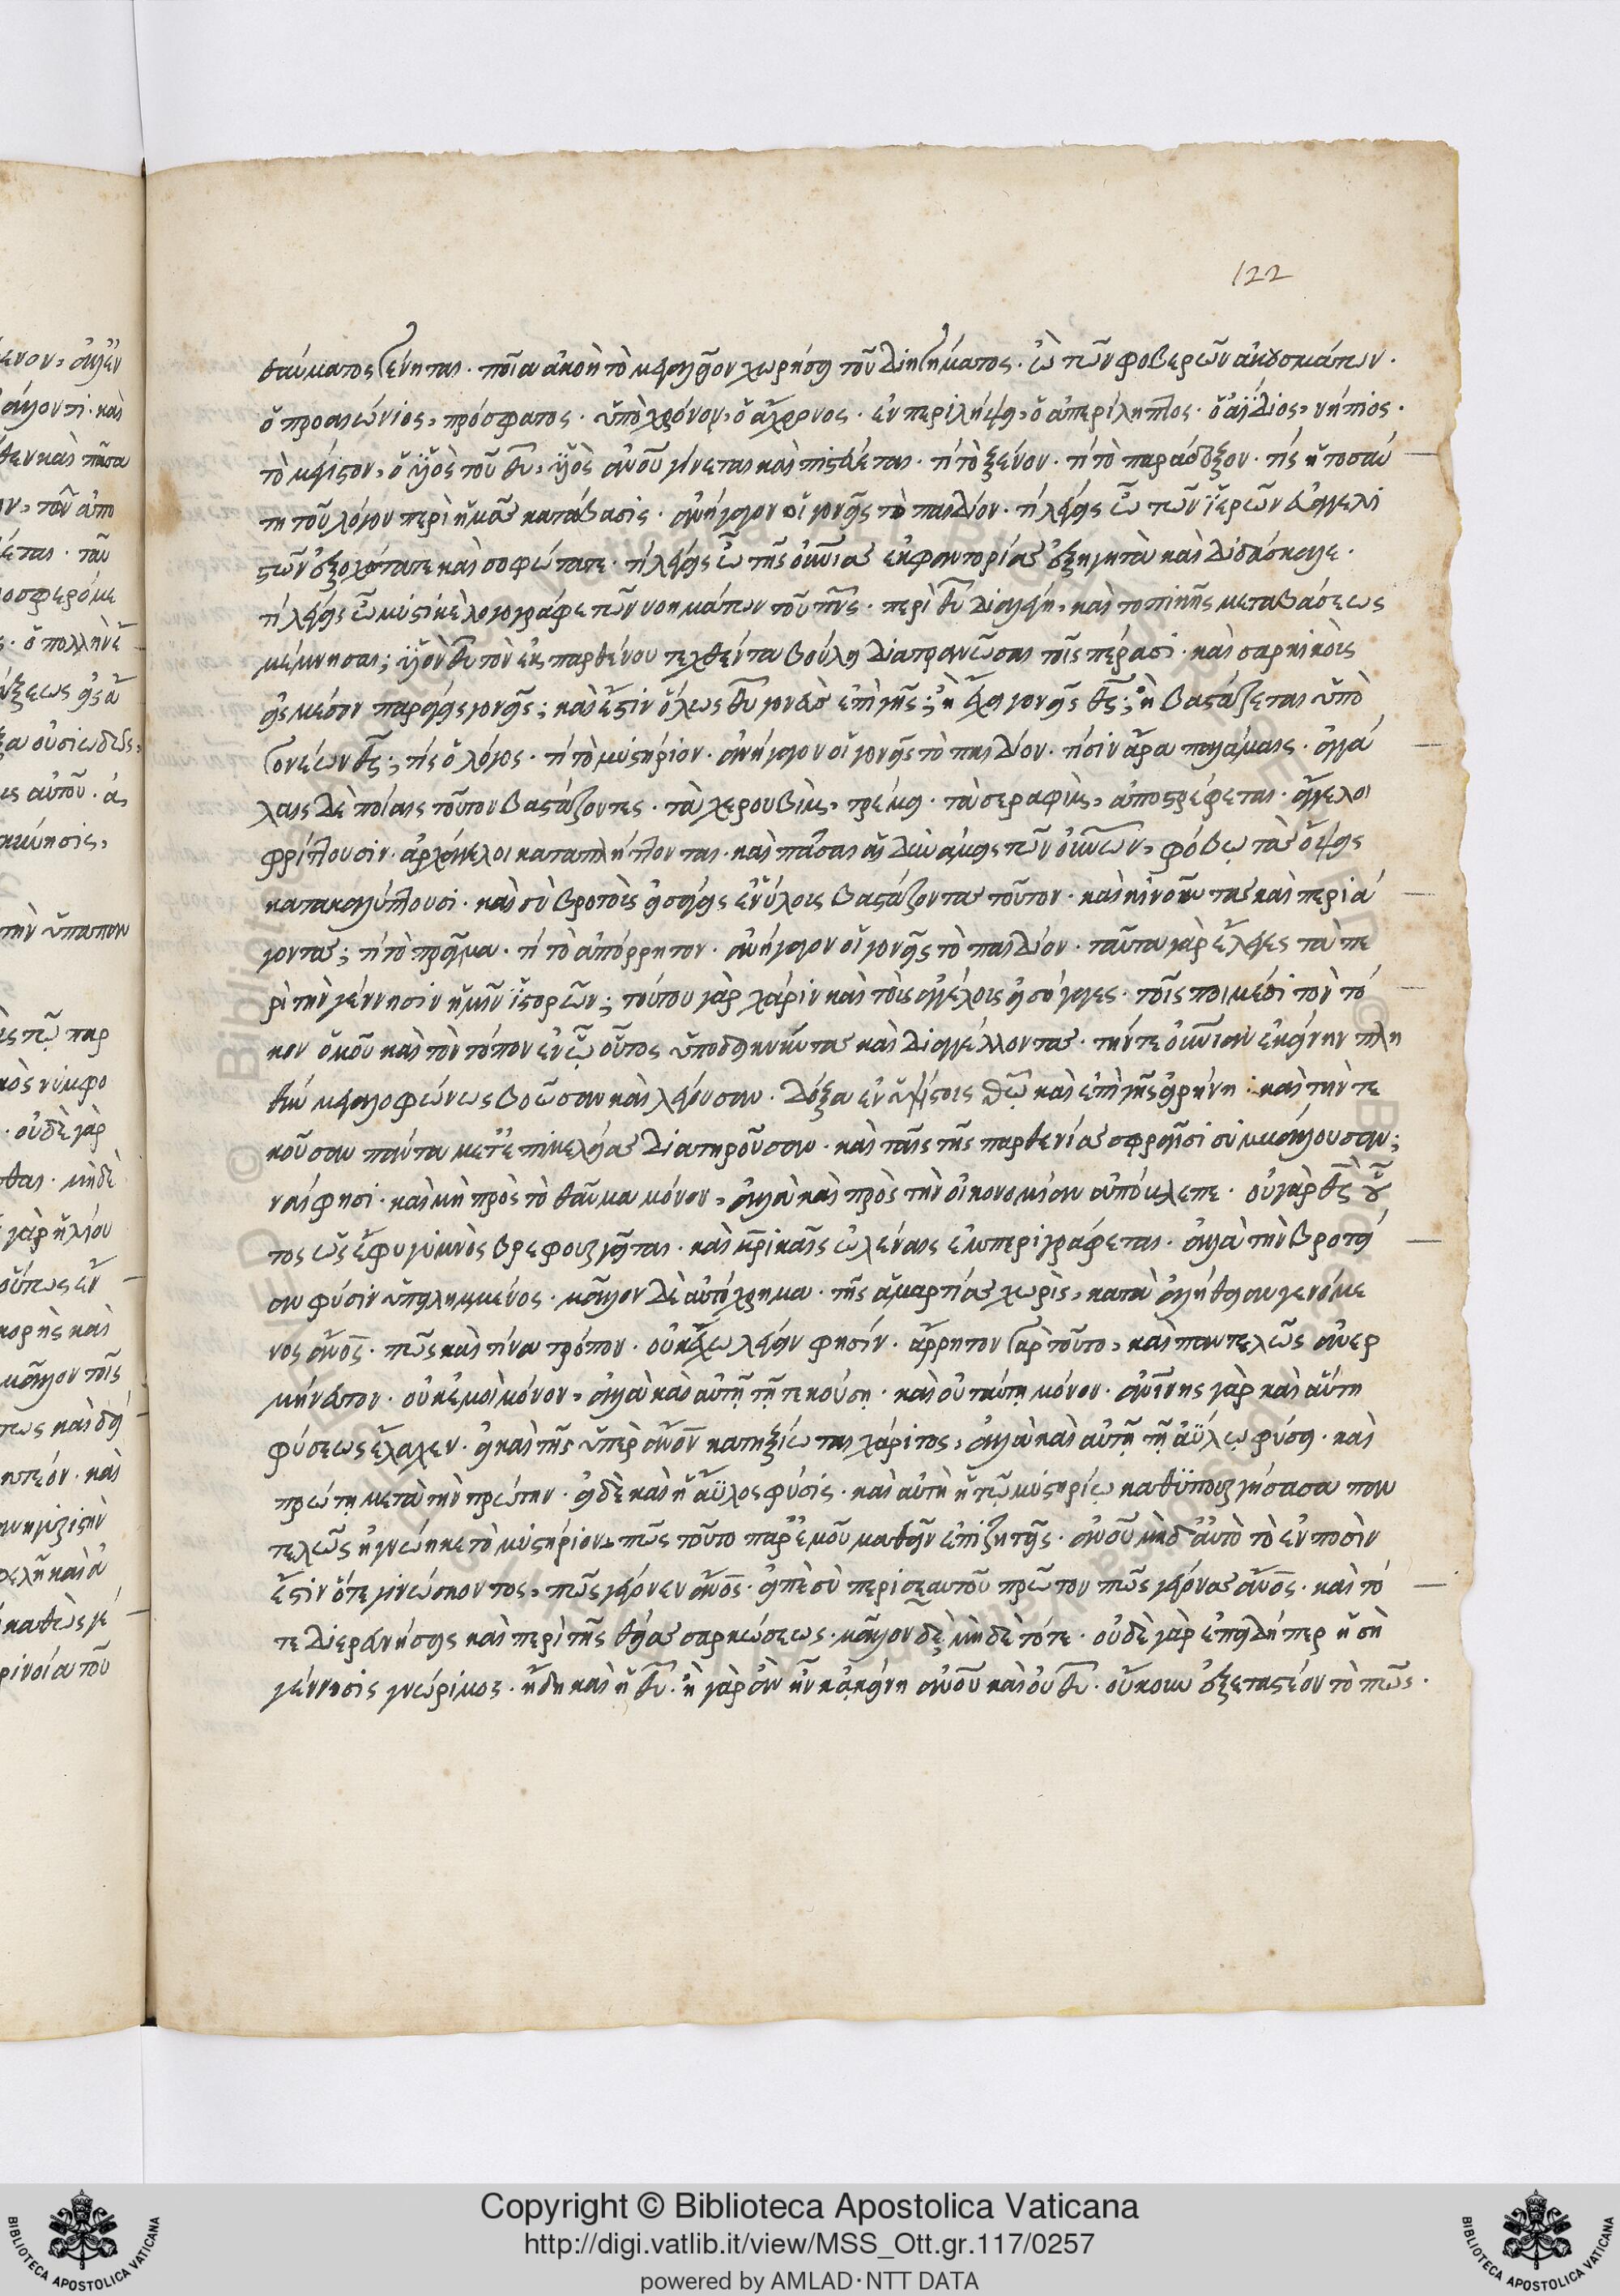 122
θαύματος γένηται· ποία ἀκοὴ τὸ μεγαλεῖον χωρήσει τοῦ διηγήματος· ὢ τῶν φοβερῶν ἀκουσμάτων·
ὁ προαιώνιος, πρόσφατος· ὑπὸ χρόνον, ὁ ἄχρονος· ἐν περιλήψει, ὁ ἀπερίληπτος· ὁ ἀΐδιος, νήπιος·
τὸ μέγιστον, ὁ υἱὸς τοῦ θυ, υἱὸς ἀνου γίνεται καὶ πιστεύεται· τί τὸ ξένον· τί τὸ παράδοξον· τίς ἡ τοσαύ
τη τοῦ λόγου περὶ ἡμᾶς κατάβασις· ἀνήγαγον οἱ γονεῖς τὸ παιδίον· τί λέγεις ὦ τῶν ἱερῶν εὐαγγελι
στῶν ἐξοχώτατε καὶ σοφώτατε· τί λέγεις ὦ τῆς οὐνίας ἐκφαντορίας ἐξηγητὰ καὶ διδάσκαλε·
τί λέγεις ὦ μυστικὲ λογογράφε τῶν νοημάτων τοῦ πνς· περὶ θυ διαλέγῃ, καὶ τοπικῆς μεταβάσεως
μέμνησαι; υἱὸν θυ τὸν ἐκ παρθένου τεχθέντα βούλει διατρανῶσαι τοῖς πέρασι· καὶ σαρκικοὺς
εἰς μέσον παράγεις γονεῖς; καὶ ἔστιν ὅλως θυ γονεὺς ἐπὶ γῆς; ἢ ἔχει γονεῖς θς; ἢ βαστάζεται ὑπὸ
γονέων θς; τίς ὁ λόγος· τί τὸ μυστήριον· ἀνήγαγον οἱ γονεῖς τὸ παιδίον· τίσιν ἄρα παλάμαις· ἀγκά
λαις δὲ ποίαις τοῦτον βαστάζοντες· τὰ χερουβὶμ, τρέμει· τὰ σεραφὶμ, ἀποστρέφεται· ἄγγελοι
φρίττουσιν· ἀρχάγγελοι καταπλήττονται· καὶ πᾶσαι αἱ δυνάμεις τῶν οὐνῶν, φόβῳ τὰς ὄψεις
κατακαλύπτουσι· καὶ σὺ βροτοὺς εἰσάγεις ἐνύλους βαστάζοντας τοῦτον· καὶ κινοῦντας καὶ περιά
γοντας; τί τὸ πρᾶγμα· τί τὸ ἀπόρρητον· ἀνήγαγον οἱ γονεῖς τὸ παιδίον· ταῦτα γὰρ ἔλεγες τὰ πε
ρὶ τὴν γέννησιν ἡμῖν ἱστορῶν; τούτου γὰρ χάριν καὶ τοὺς ἀγγέλους εἰσάγαγες· τοῖς ποιμέσι τὸν τό
κον ὁμοῦ καὶ τὸν τόπον ἐν ᾧ οὗτος ὑποδεικνύντας καὶ διαγγέλλοντας· τήν τε οὐνίαν ἐκείνην πλη
θὺν μεγαλοφώνως βοῶσαν καὶ λέγουσαν· δόξα ἐν ὑψίστοις θῷ καὶ ἐπὶ γῆς εἰρήνη· καὶ τήν τε
κοῦσαν πάντα μετ' ἐπιμελείας διατηροῦσαν· καὶ ταῖς τῆς παρθενίας σφραγῖσι συμβάλλουσαν;
ναί φησι· καὶ μὴ πρὸς τὸ θαῦμα μόνον, ἀλλὰ καὶ πρὸς τὴν οἰκονομίαν ἀπόβλεπε· οὐ γὰρ θς οὗ
τος ὡς ἔφυ γυμνὸς βρεφουργεῖται· καὶ μητρικαῖς ὠλέναις ἐμπεριγράφεται· ἀλλὰ τὴν βροτεί
αν φύσιν ὑπειλημμένος· μᾶλλον δὲ αὐτόχρημα· τῆς ἁμαρτίας χωρὶς, κατὰ ἀλήθειαν γενόμε
νος ἀνος· πῶς καὶ τίνα τρόπον· οὐκ ἔχω λέγειν φησίν· ἄρρητον γὰρ τοῦτο, καὶ παντελῶς ἀνερ
μήνευτον· οὐκ ἐμοὶ μόνον, ἀλλὰ καὶ αὐτῇ τῇ τεκούσῃ· καὶ οὐ ταύτῃ μόνον· ἀνίνης γὰρ καὶ αὕτη
φύσεως ἔλαχεν· εἰ καὶ τῆς ὑπὲρ ἀνον κατηξίωται χάριτος, ἀλλὰ καὶ αὐτῇ τῇ ἀΰλῳ φύσει· καὶ
πρώτῃ μετὰ τὴν πρώτην· εἰ δὲ καὶ ἡ ἄϋλος φύσις· καὶ αὐτὴ ἡ τῷ μυστηρίῳ καθυπουργήσασα παν
τελῶς ἠγνώηκε τὸ μυστήριον, πῶς τοῦτο παρ' ἐμοῦ μαθεῖν ἐπιζητεῖς· ἀνου μηδ' αὐτὸ τὸ ἐν ποσὶν
ἔστιν ὅτε γινώσκοντος, πῶς γέγονεν ἀνος· εἰπὲ σὺ περὶ σεαυτοῦ πρῶτον πῶς γέγονας ἀνος· καὶ τό
τε διερευνήσεις καὶ περὶ τῆς θείας σαρκώσεως· μᾶλλον δὲ, μηδὲ τότε· οὐδὲ γὰρ ἐπειδήπερ ἡ σὴ
γέννησις γνώριμος· ἤδη καὶ ἡ θυ· ἢ γὰρ ἂν ἦν κἀκείνη ἀνου καὶ οὐ θυ· οὔκουν ἐξεταστέον τὸ πῶς·
Copyright © Biblioteca Apostolica Vaticana
http://digi.vatlib.it/view/MSS_Ott.gr.117/0257
powered by AMLAD·NTT DATA